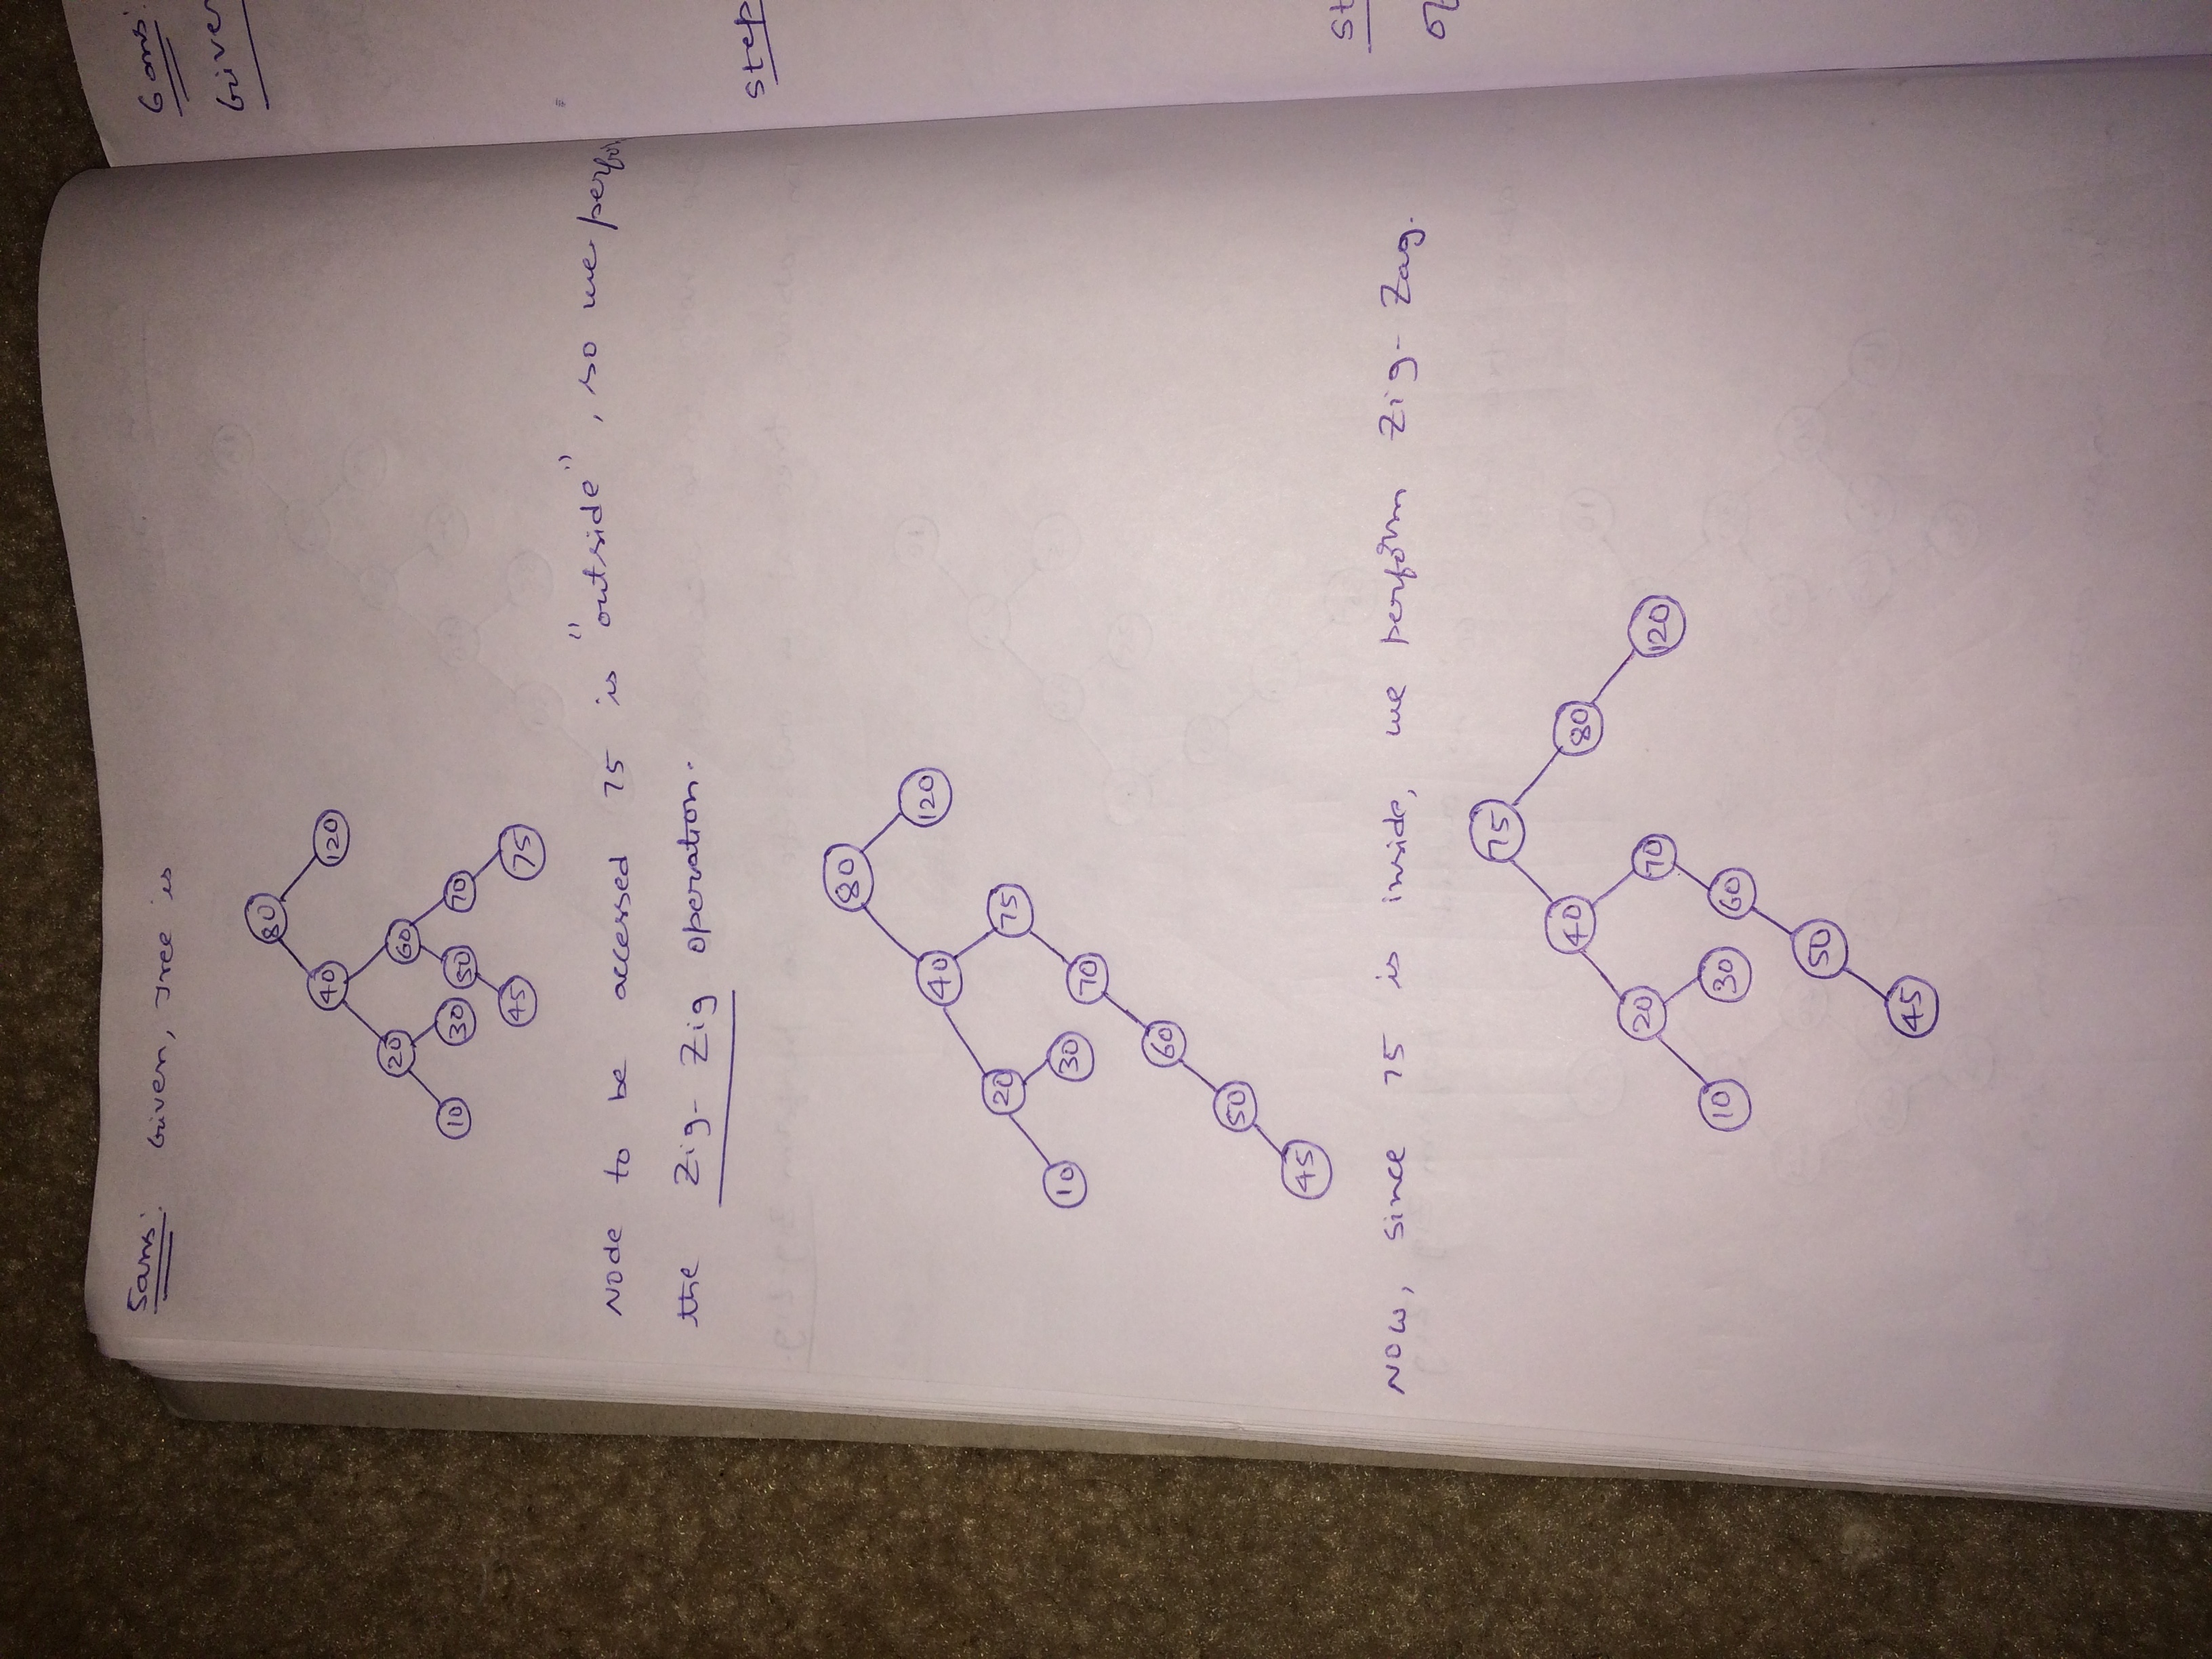 5ans: Given, Tree is
80
40 120
20 60
10 30 50 70
45 75
Node to be accessed 75 is "outside", so we perfor
the Zig-Zig operation.
80
40 120
20 75
10 30 70
60
50
45
Now, since 75 is inside, we perform Zig-Zag.
75
40 80
20 70 120
10 30 60
50
45
6 ans:
Given
Step
St
of